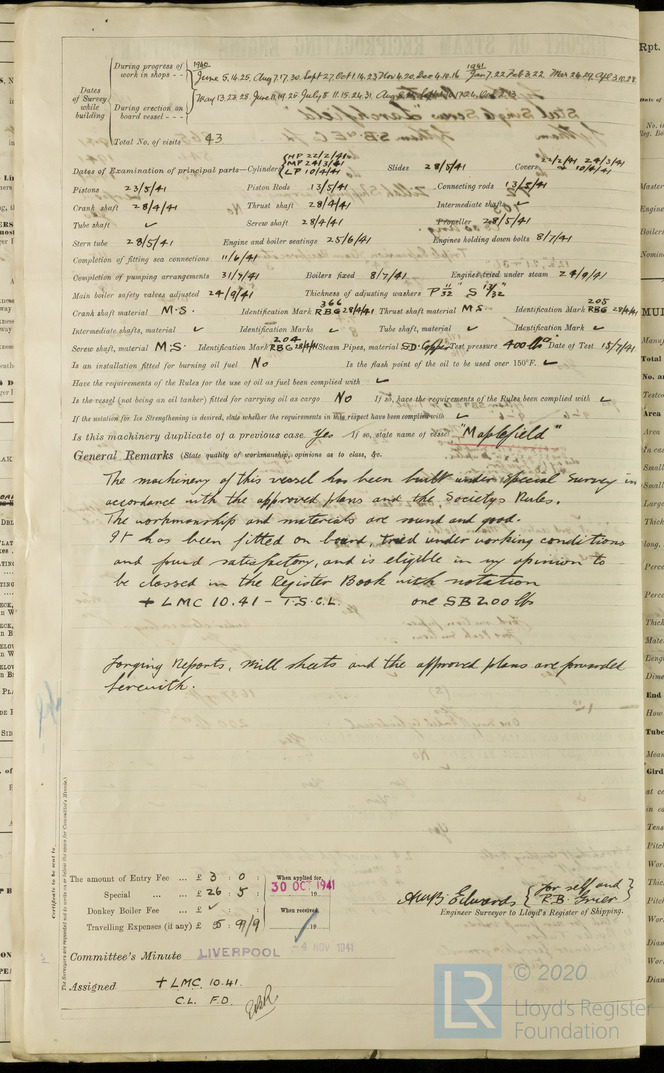 During progress of work in shops - - 1940 June 5,14.25, Aug 7.17.30. Sept 27. Oct 1.14.23 Nov 4.20. Dec 4.10.16 1941 Jan 7.22 Feb 3.22 Mar 26.29. Apl 3.10.28
Dates of Survey while building
During erection on board vessel - - - May 13.23.28. June 11.19.25 July 8.11.15.24.31. Aug
Total No. of visits 43
Dates of Examination of principal parts—Cylinders HP 22/2/41 MP 24/3/41 LP 10/4/41 Slides 28/5/41 Covers 22/2/41 24/3/41 10/4/41
Pistons 23/5/41 Piston Rods 13/5/41 Connecting rods 13/5/41
Crank shaft 28/4/41 Thrust shaft 28/4/41 Intermediate shafts ✓
Tube shaft ✓ Screw shaft 28/4/41 Propeller 28/5/41
Stern tube 28/5/41 Engine and boiler seatings 25/6/41 Engines holding down bolts 8/7/41
Completion of fitting sea connections 11/6/41
Completion of pumping arrangements 31/7/41 Boilers fixed 8/7/41 Engines tried under steam 24/9/41
Main boiler safety valves adjusted 24/9/41 Thickness of adjusting washers P 11/32" S 13/32"
Crank shaft material M.S. Identification Mark 366 RBG 28/4/41 Thrust shaft material M.S. Identification Mark 205 RBG 28/4/41
Intermediate shafts, material ✓ Identification Marks ✓ Tube shaft, material ✓ Identification Mark ✓
Screw shaft, material M.S. Identification Mark 204 RBG 28/4/41 Steam Pipes, material S.D. Copper Test pressure 400 lbs Date of Test 15/7/41
Is an installation fitted for burning oil fuel No Is the flash point of the oil to be used over 150°F. ✓
Have the requirements of the Rules for the use of oil as fuel been complied with ✓
Is the vessel (not being an oil tanker) fitted for carrying oil as cargo No If so, have the requirements of the Rules been complied with ✓
If the notation for Ice Strengthening is desired, state whether the requirements in this respect have been complied with ✓
Is this machinery duplicate of a previous case. Yes If so, state name of vessel "Maplefield"
General Remarks (State quality of workmanship, opinions as to class, &c.
The machinery of this vessel has been built under special survey in
accordance with the approved plans and the Societys Rules.
The workmanship and materials are sound and good.
It has been fitted on board, tried under working conditions
and found satisfactory, and is eligible in my opinion to
be classed in the Register Book with notation
+ LMC 10.41 - T.S.C.L. one SB 200 lb
Forging Reports, mill sheets and the approved plans are forwarded
herewith.
Certificate to be sent to
The Surveyors are requested not to write on or below the space for Committee's Minute.
The amount of Entry Fee ... £ 3 : 0 : When applied for,
Special ... ... £ 26 : 5 : 30 OCT 1941
Donkey Boiler Fee ... £ ✓ : : When received,
Travelling Expenses (if any) £ 5 : 9/9 19
for self and
R.B. Grier
Edwards
Engineer Surveyor to Lloyd's Register of Shipping.
Committee's Minute LIVERPOOL -4 NOV 1941
Assigned + LMC 10.41.
C.L. F.D.
LR © 2020
Lloyd's Register
Foundation